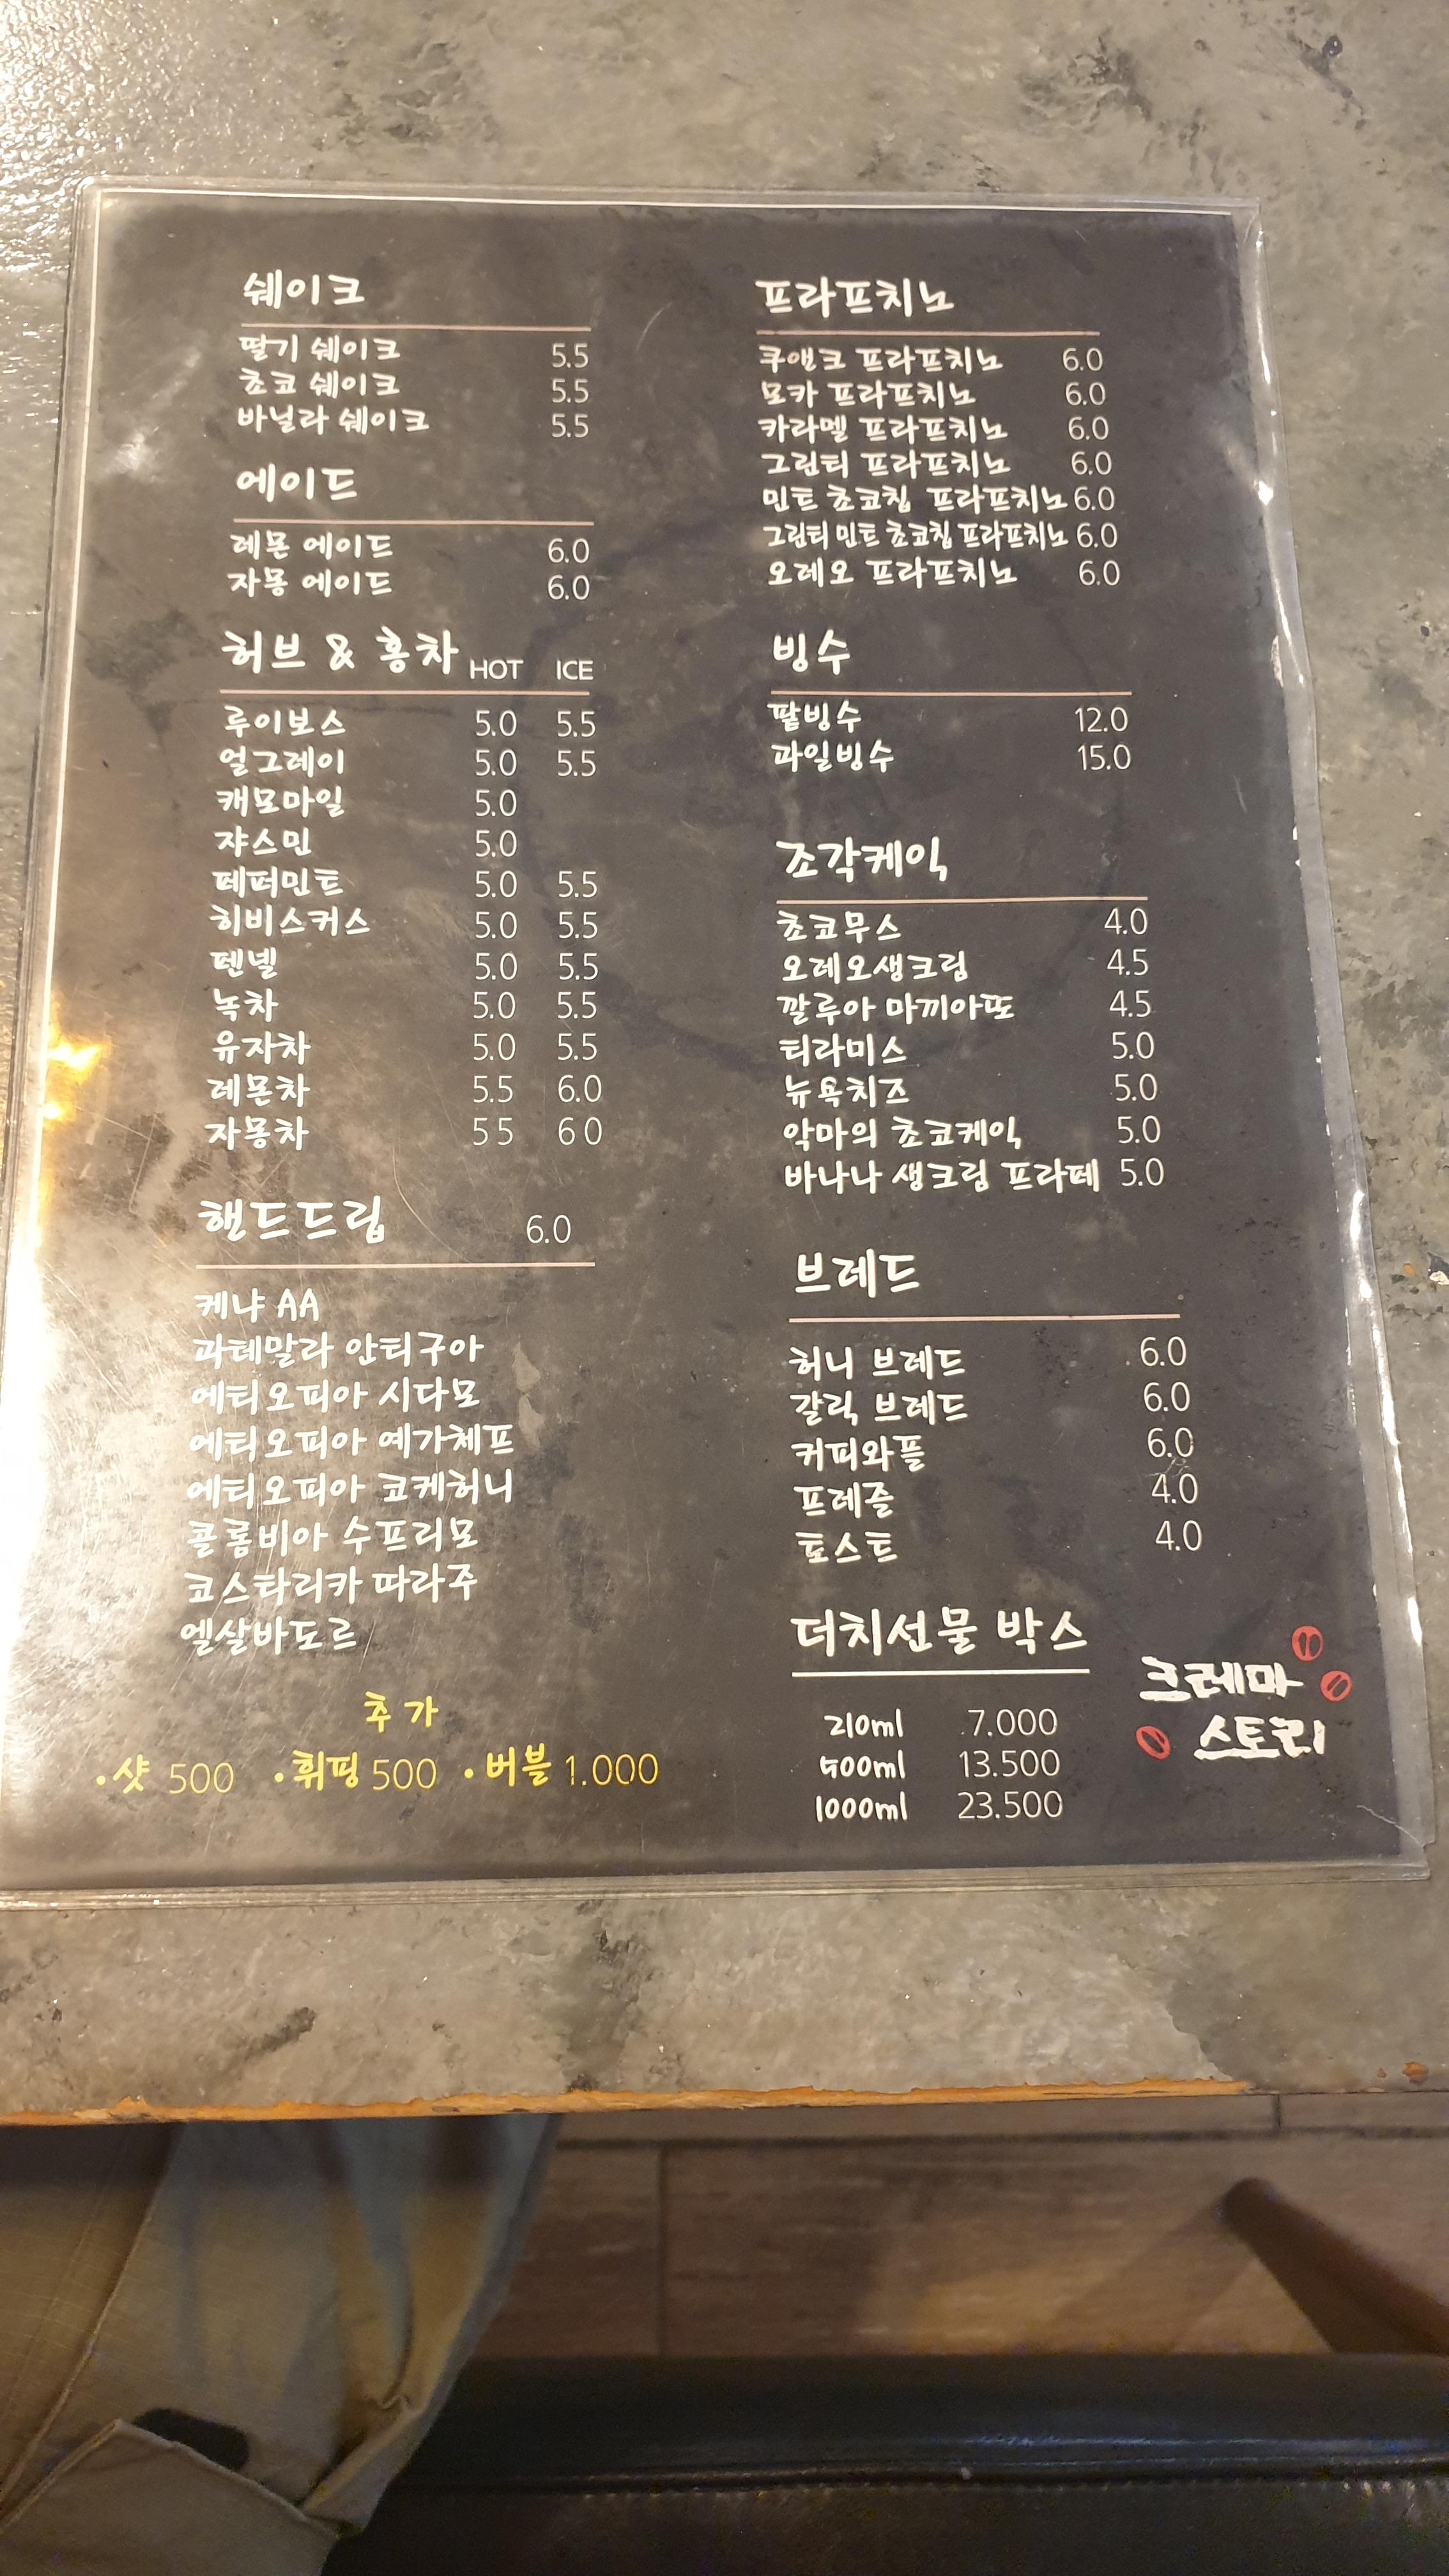 쉐이크
딸기 쉐이크 5.5
초코 쉐이크 5.5
바닐라 쉐이크 5.5
에이드
레몬 에이드 6.0
자몽 에이드 6.0
허브 & 홍차 HOT ICE
루이보스 5.0 5.5
얼그레이 5.0 5.5
캐모마일 5.0
쟈스민 5.0
페퍼민트 5.0 5.5
히비스커스 5.0 5.5
펜넬 5.0 5.5
녹차 5.0 5.5
유자차 5.0 5.5
레몬차 5.5 6.0
자몽차 5 5 6 0
핸드드립 6.0
케냐 AA
과테말라 안티구아
에티오피아 시다모
에티오피아 예가체프
에티오피아 코케허니
콜롬비아 수프리모
코스타리카 따라주
엘살바도르
추가
· 샷 500 · 휘핑 500 · 버블 1.000
프라프치노
쿠앤크 프라프치노 6.0
모카 프라프치노 6.0
카라멜 프라프치노 6.0
그린티 프라프치노 6.0
민트 초코칩 프라프치노 6.0
그린티 민트 초코칩 프라프치노 6.0
오레오 프라프치노 6.0
빙수
팥빙수 12.0
과일빙수 15.0
조각케익
초코무스 4.0
오레오생크림 4.5
깔루아 마끼아또 4.5
티라미스 5.0
뉴욕치즈 5.0
악마의 초코케익 5.0
바나나 생크림 프라페 5.0
브레드
허니 브레드 6.0
갈릭 브레드 6.0
커피와플 6.0
프레즐 4.0
토스트 4.0
더치선물 박스
210ml 7.000
500ml 13.500
1000ml 23.500
크레마
스토리